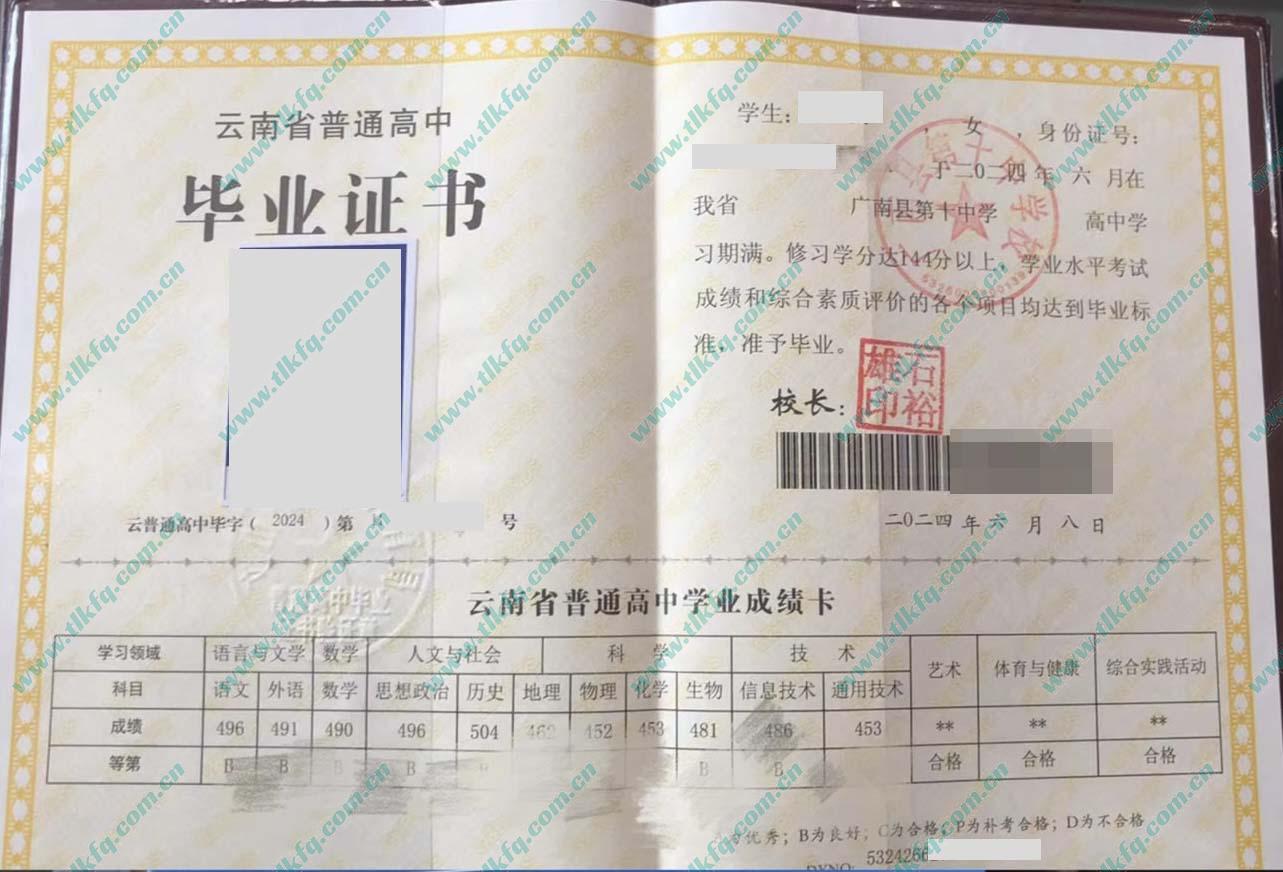 云南省普通高中
毕业证书
云普通高中毕字（ 2024 ）第 号
学生： ，女 ，身份证号：
于二〇二四年 六 月在
我省 广南县第十中学 高中学
习期满。修习学分达144分以上，学业水平考试
成绩和综合素质评价的各个项目均达到毕业标
准，准予毕业。
校长：
石裕雄印
二〇二四年六月八日
云南省普通高中学业成绩卡
学习领域 语言与文学 数学 人文与社会 科学 技术 艺术 体育与健康 综合实践活动
科目 语文 外语 数学 思想政治 历史 地理 物理 化学 生物 信息技术 通用技术
成绩 496 491 490 496 504 462 452 453 481 486 453 ** ** **
等第 B B B B B B B 合格 合格 合格
为优秀；B为良好；C为合格；P为补考合格；D为不合格
5324266
www.tlkfq.com.cn